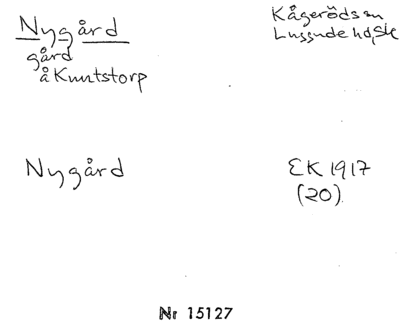 Nygård
gård
å Knutstorp
Kågeröds sn
Luggude hd, Sk
Nygård
EK 1917
(20)
Nr 15127